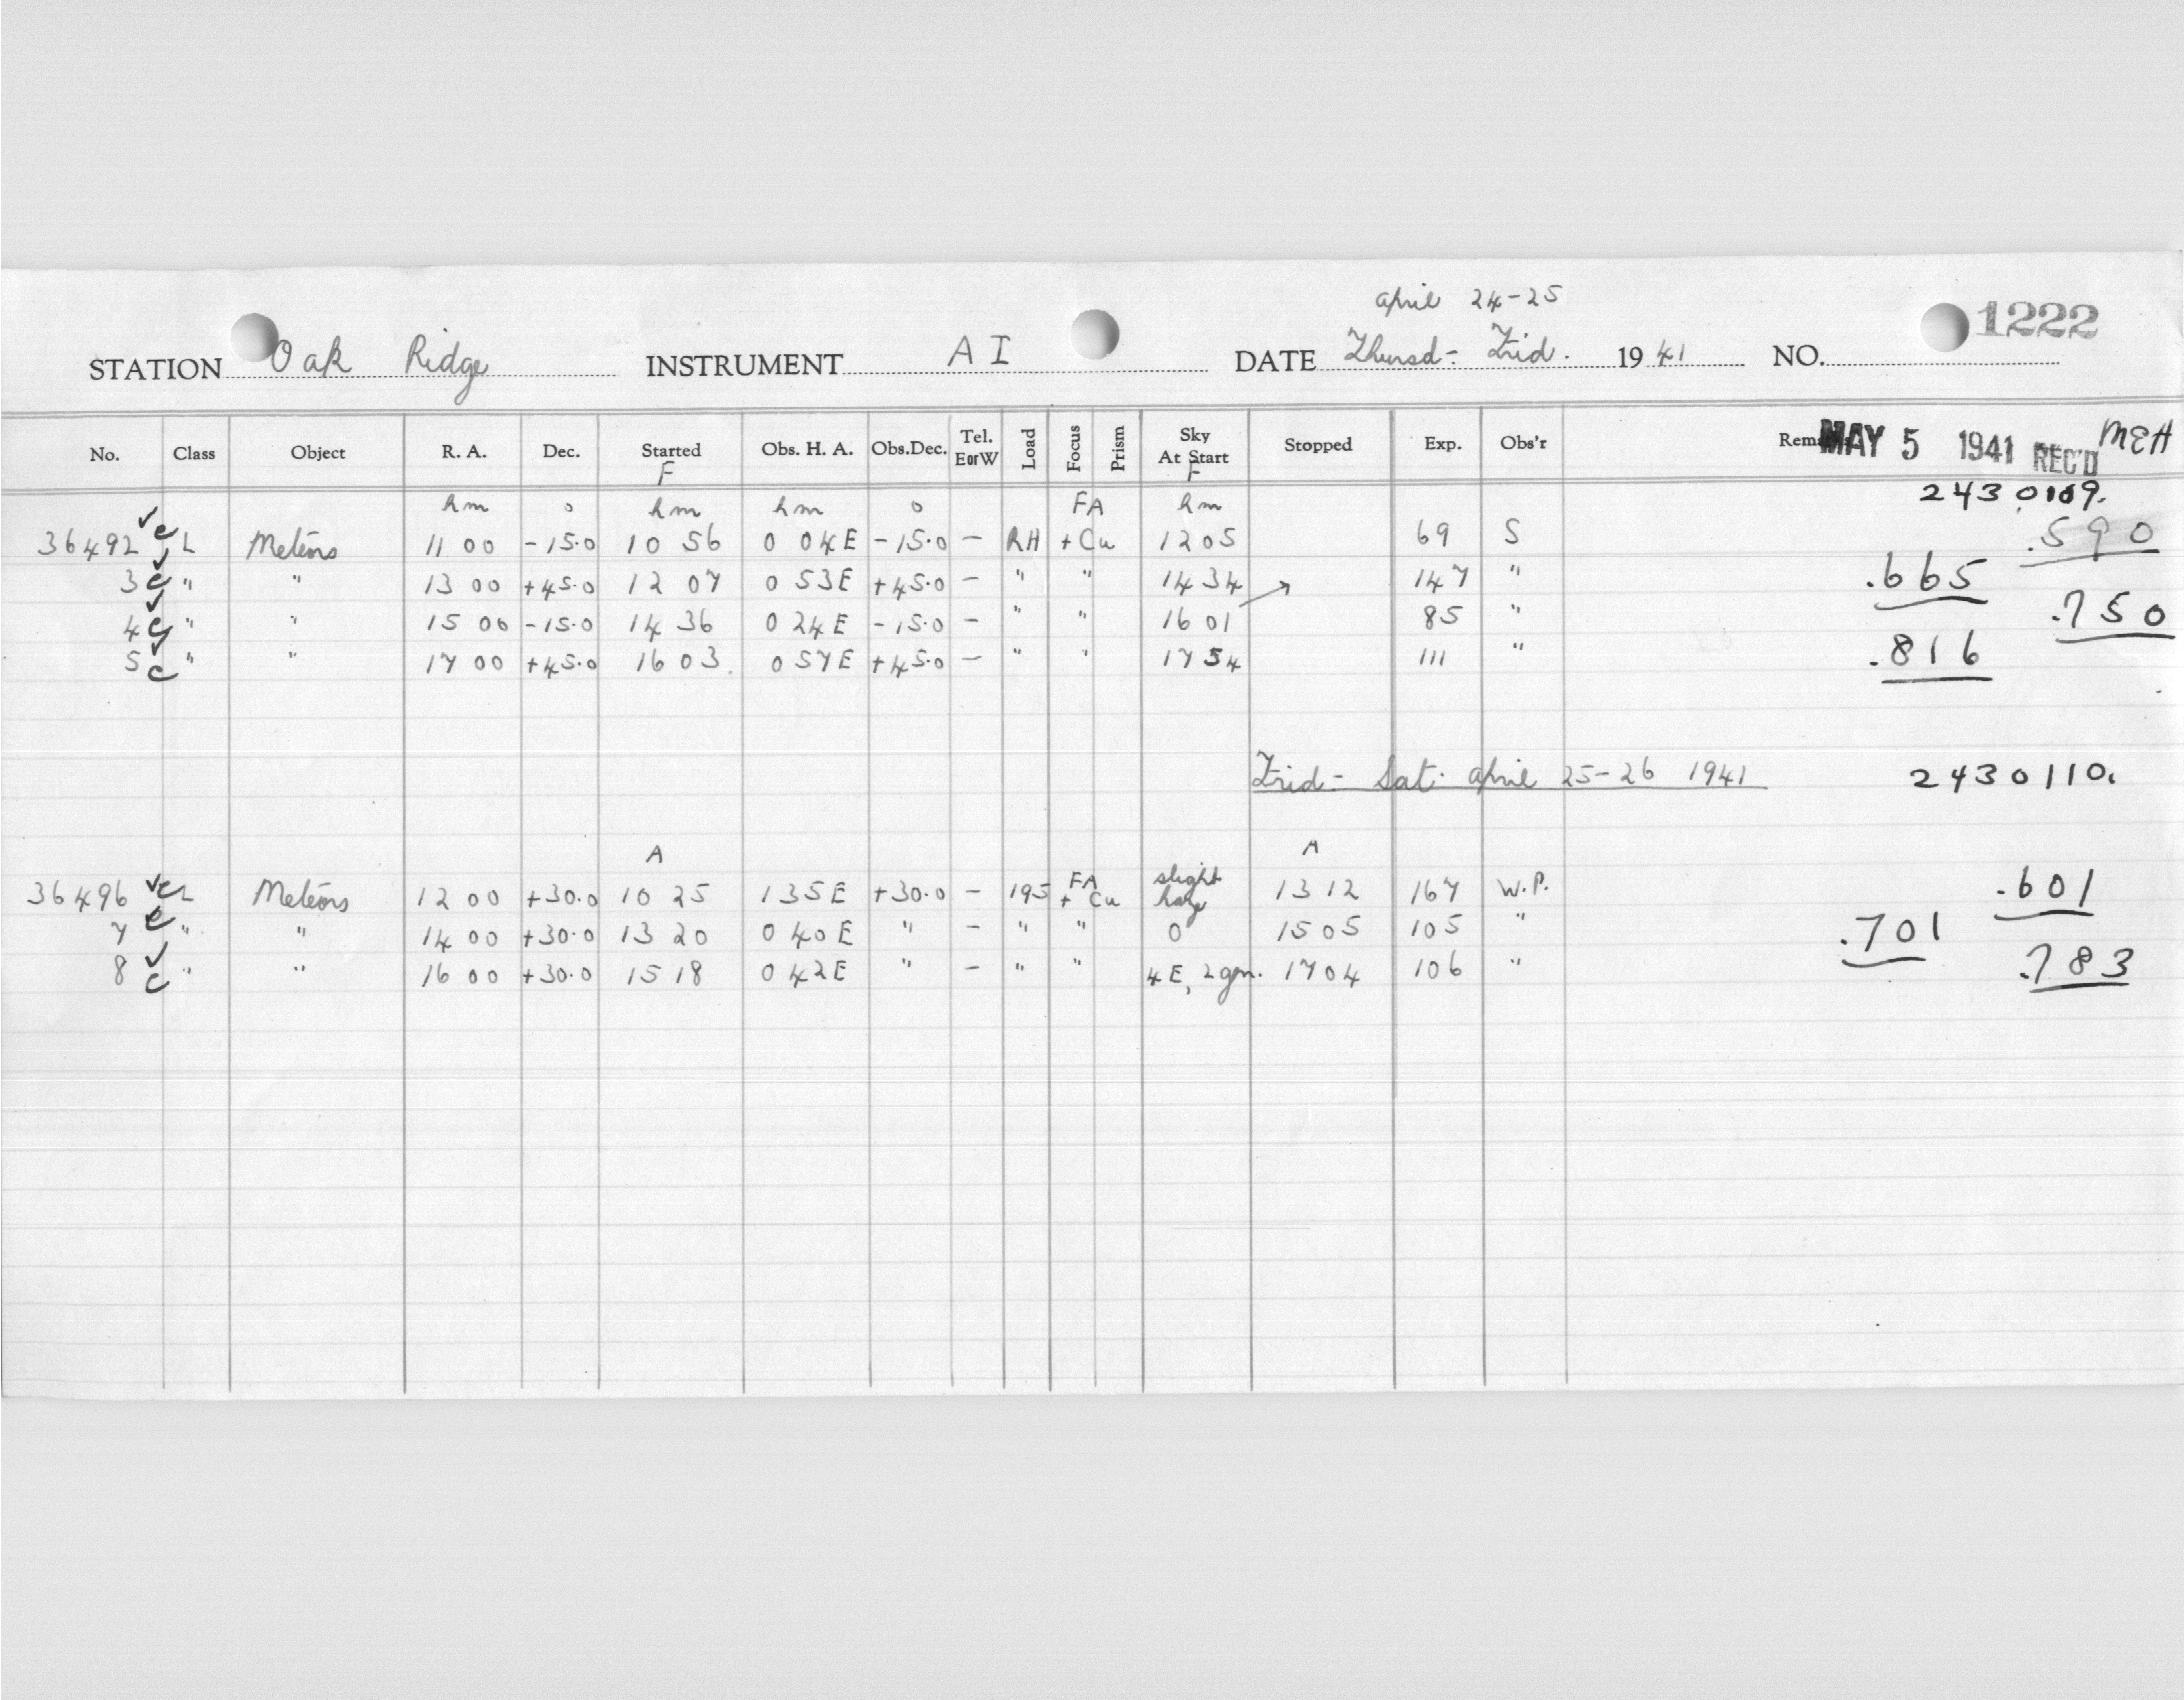 april 24-25
STATION Oak Ridge INSTRUMENT A I DATE Thursd- Frid. 1941 NO. 1222
No. Class Object R. A. Dec. Started Obs. H. A. Obs.Dec. Tel. EorW Load Focus Prism Sky At Start Stopped Exp. Obs'r Remarks MAY 5 1941 REC'D MEH
F F
hm ° hm hm ° FA hm 2430109.
36492 ✓c L Meteors 11 00 -15.0 10 56 0 04E -15.0 - RH + Cu 1205 69 S .590
3 ✓c " " 13 00 +45.0 12 07 0 53E +45.0 - " " 1434 → 147 " .665
4 ✓c " " 15 00 -15.0 14 36 0 24E -15.0 - " " 1601 85 " .750
5 ✓c " " 17 00 +45.0 16 03 0 57E +45.0 - " " 1754 111 " .816
Frid- Sat. april 25-26 1941 2430110.
A A
36496 ✓c L Meteors 12 00 +30.0 10 25 1 35E +30.0 - 195 FA + Cu slight haze 1312 167 W.P. .601
7 c " " 14 00 +30.0 13 20 0 40E " - " " 0 1505 105 " .701
8 ✓c " " 16 00 +30.0 15 18 0 42E " - " " 4E, 2gm. 1704 106 " .783